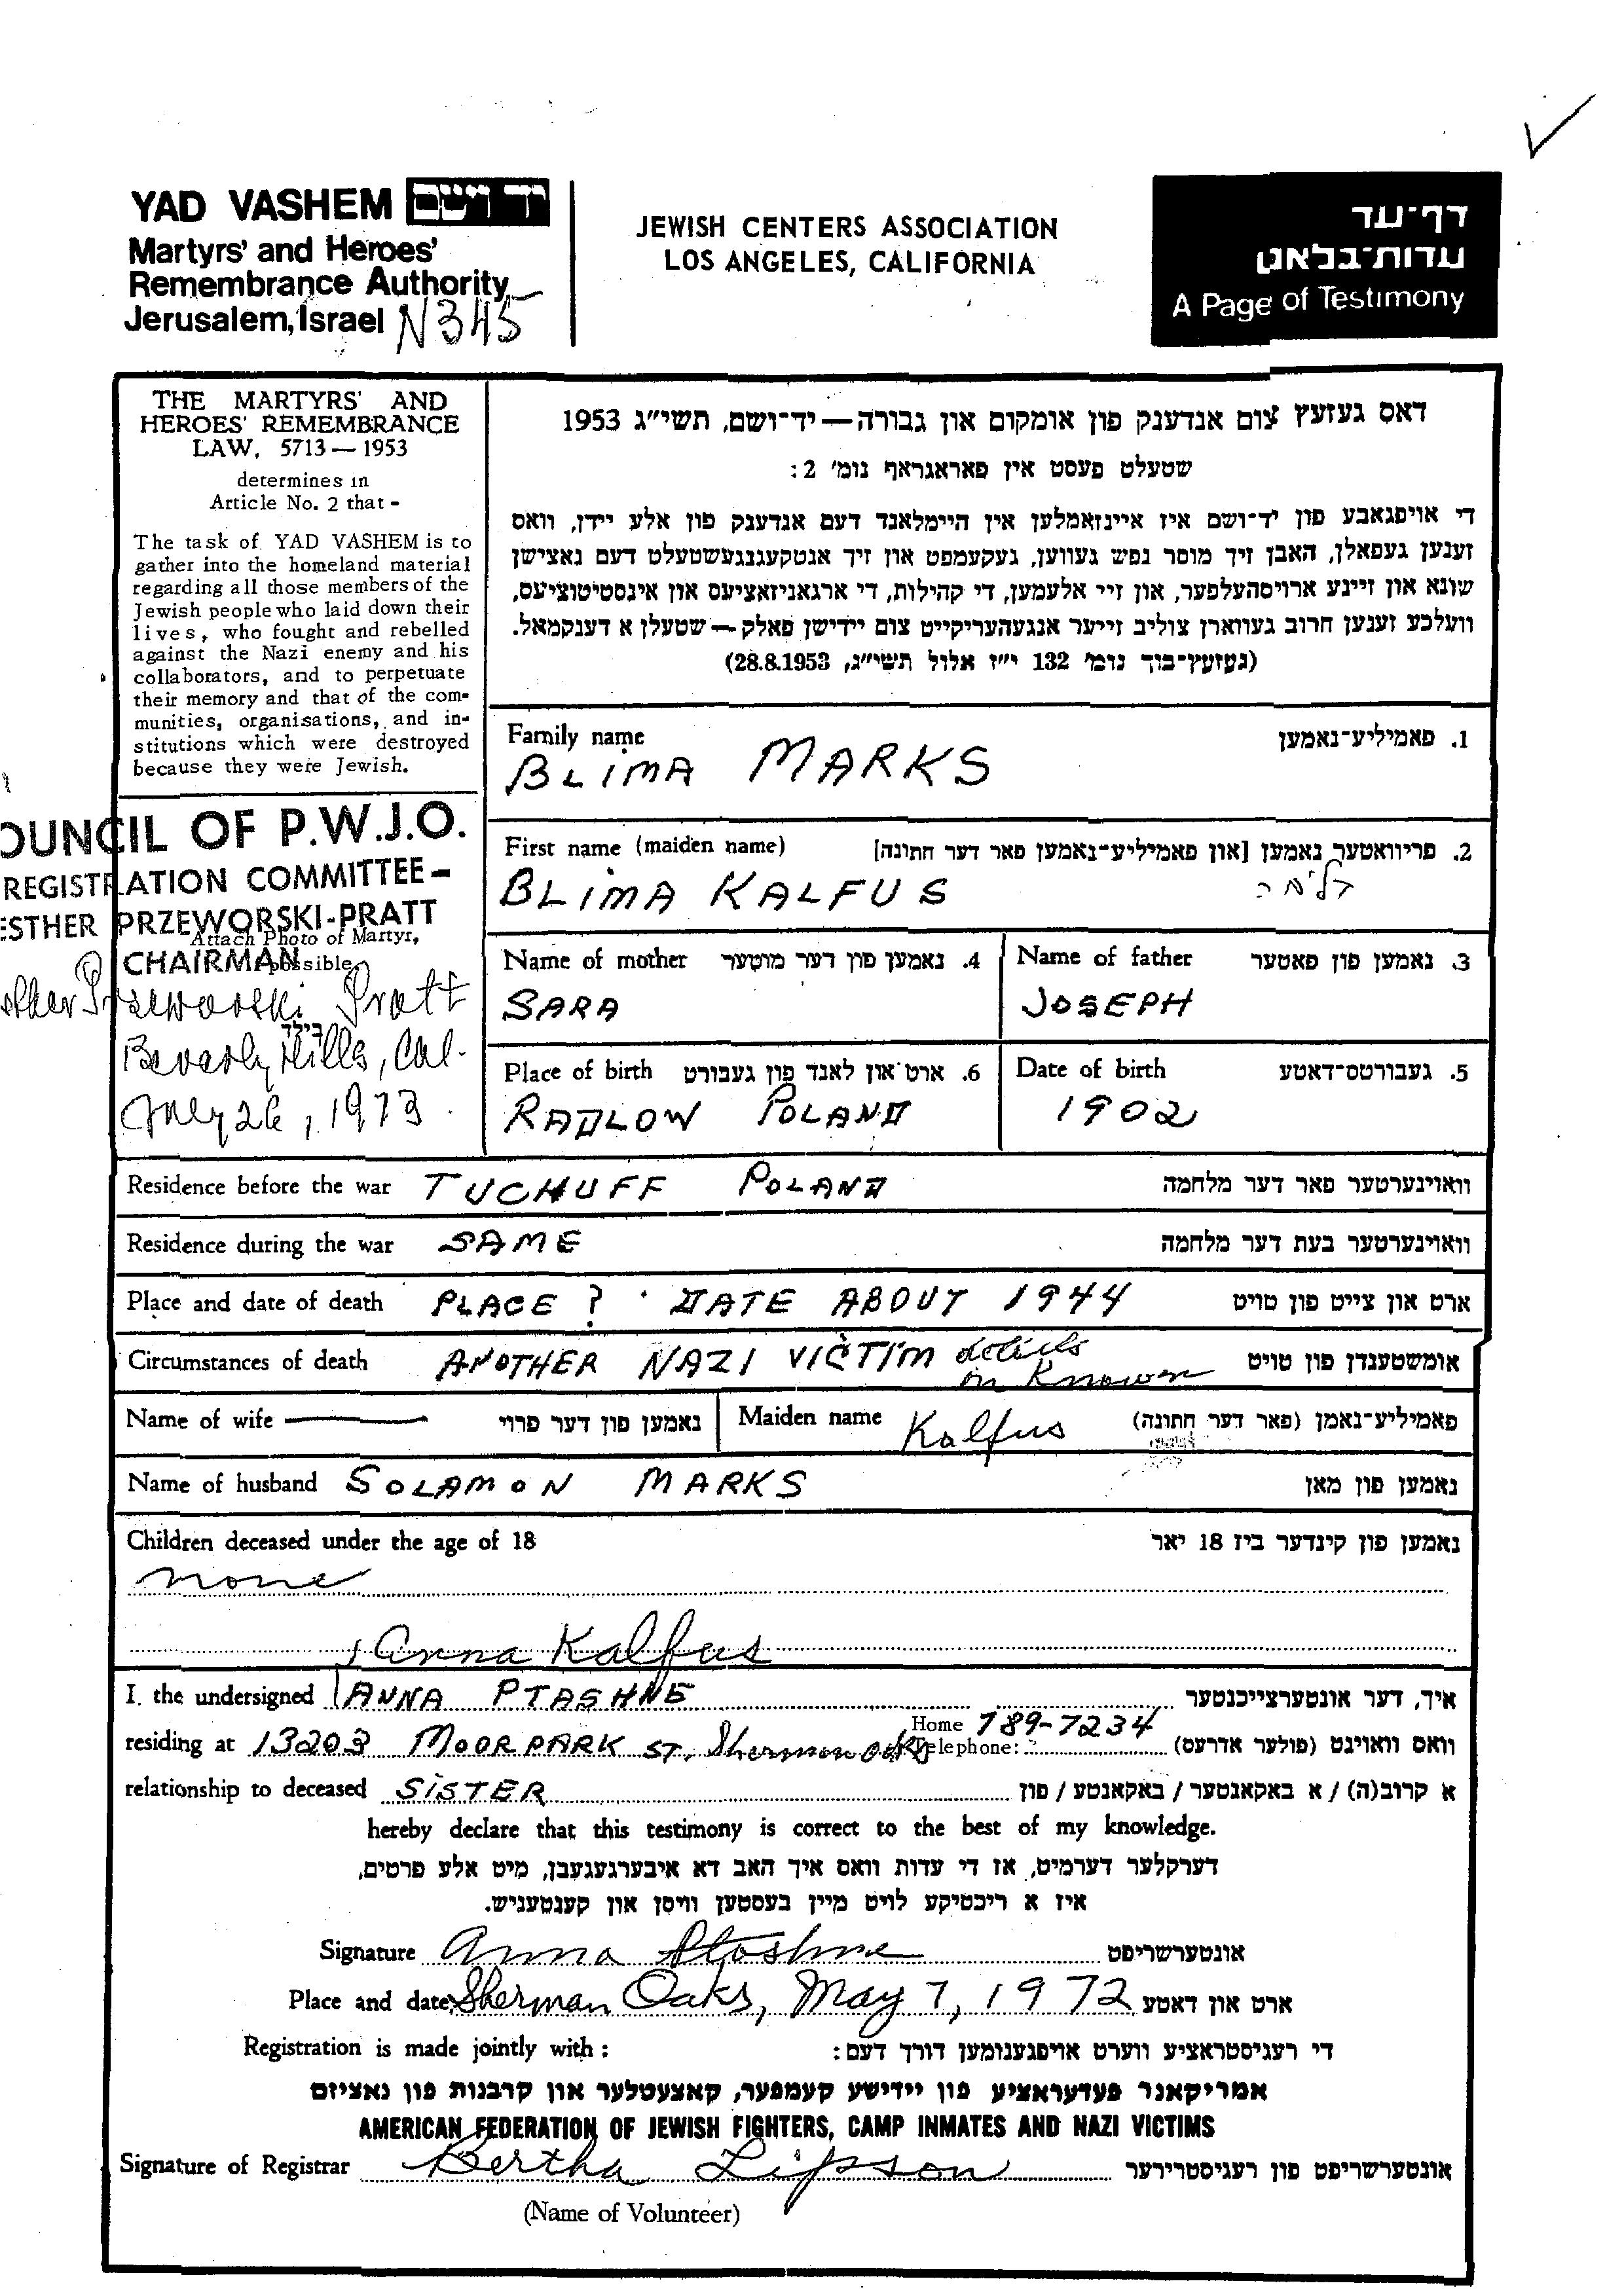 YAD VASHEM יד ושם
Martyrs' and Heroes'
Remembrance Authority
Jerusalem, Israel N345
JEWISH CENTERS ASSOCIATION
LOS ANGELES, CALIFORNIA
דף-עד
עדות-בלאט
A Page of Testimony
THE MARTYRS' AND
HEROES' REMEMBRANCE
LAW, 5713 — 1953
determines in
Article No. 2 that -
The task of YAD VASHEM is to
gather into the homeland material
regarding all those members of the
Jewish people who laid down their
lives, who fought and rebelled
against the Nazi enemy and his
collaborators, and to perpetuate
their memory and that of the com-
munities, organisations, and in-
stitutions which were destroyed
because they were Jewish.
דאס געזעץ צום אנדענק פון אומקום און גבורה — יד-ושם, תשי"ג 1953
שטעלט פעסט אין פאראגראף נומ' 2:
די אויפגאבע פון יד-ושם איז איינזאמלען אין היימלאנד דעם אנדענק פון אלע יידן, וואס
זענען געפאלן, האבן זיך מוסר נפש געווען, געקעמפט און זיך אנטקעגנגעשטעלט דעם נאצישן
שונא און זיינע ארויסהעלפער, און זיי אלעמען, די קהילות, די ארגאניזאציעס און אינסטיטוציעס,
וועלכע זענען חרוב געווארן צוליב זייער אנגעהעריקייט צום יידישן פאלק — שטעלן א דענקמאל.
(געזעץ-בוך נומ' 132 י"ז אלול תשי"ג, 28.8.1953)
OUNCIL OF P.W.J.O.
REGISTRATION COMMITTEE-
ESTHER PRZEWORSKI-PRATT
Attach Photo of Martyr,
CHAIRMAN possible
sther Przeworski Pratt
בילד
Beverly Hills, Cal.
July 26, 1973
Family name 1. פאמיליע-נאמען
BLIMA MARKS
First name (maiden name) 2. פריוואטער נאמען [און פאמיליע-נאמען פאר דער חתונה]
BLIMA KALFUS בלימה
Name of mother 4. נאמען פון דער מוטער Name of father 3. נאמען פון פאטער
SARA JOSEPH
Place of birth 6. ארט און לאנד פון געבורט Date of birth 5. געבורטס-דאטע
RADLOW POLAND 1902
Residence before the war TUCHUFF POLAND וואוינערטער פאר דער מלחמה
Residence during the war SAME וואוינערטער בעת דער מלחמה
Place and date of death PLACE ? DATE ABOUT 1944 ארט און צייט פון טויט
Circumstances of death ANOTHER NAZI VICTIM details un known אומשטענדן פון טויט
Name of wife נאמען פון דער פרוי Maiden name Kalfus פאמיליע-נאמן (פאר דער חתונה)
Name of husband SOLAMON MARKS נאמען פון מאן
Children deceased under the age of 18 נאמען פון קינדער ביז 18 יאר
none
Anna Kalfus
I, the undersigned ANNA PTASHNE איך, דער אונטערצייכנטער
residing at 13203 MOORPARK ST. Sherman Oaks Home Telephone: 789-7234 וואס וואוינט (פולער אדרעס)
relationship to deceased SISTER א קרוב(ה) / א באקאנטער / באקאנטע / פון
hereby declare that this testimony is correct to the best of my knowledge.
דערקלער דערמיט, אז די עדות וואס איך האב דא איבערגעגעבן, מיט אלע פרטים,
איז א ריכטיקע לויט מיין בעסטען וויסן און קענטעניש.
Signature Anna Ptashne אונטערשריפט
Place and date Sherman Oaks, May 7, 1972 ארט און דאטע
Registration is made jointly with : די רעגיסטראציע ווערט אויפגענומען דורך דעם:
אמריקאנר פעדעראציע פון יידישע קעמפער, קאצעטלער און קרבנות פון נאציזם
AMERICAN FEDERATION OF JEWISH FIGHTERS, CAMP INMATES AND NAZI VICTIMS
Signature of Registrar Bertha Lipson אונטערשריפט פון רעגיסטרירער
(Name of Volunteer)